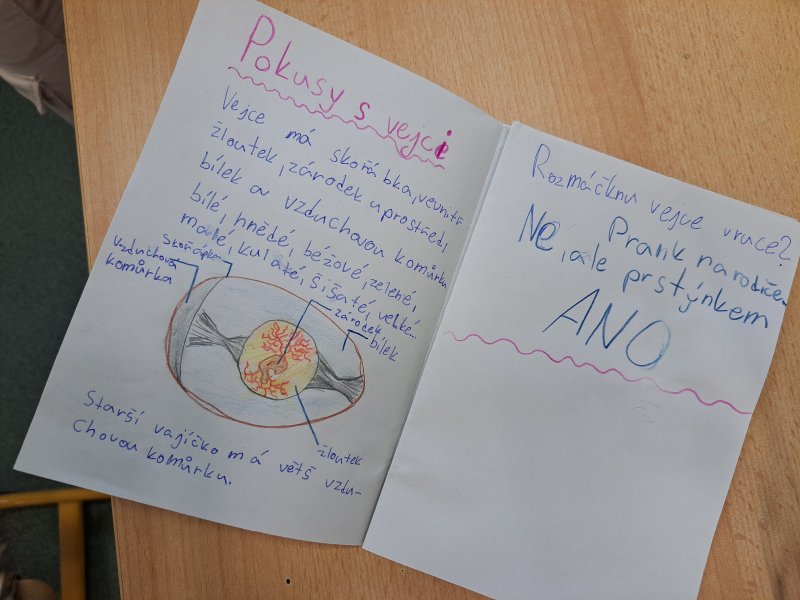 Pokusy s vejci
Vejce má skořábka, vevnitř
žloutek, zárodek uprostřed,
bílek a vzduchovou komůrku
bílé, hnědé, béžové, zelené,
malé, kulaté, šišaté, velké...
Vzduchová
komůrka
Skořápka
zárodek
bílek
žloutek
Starší vajíčko má větš vzdu-
chovou komůrku.
Rozmáčknu vejce v ruce?
Prank na rodiče
Ne, ale prstýnkem
ANO